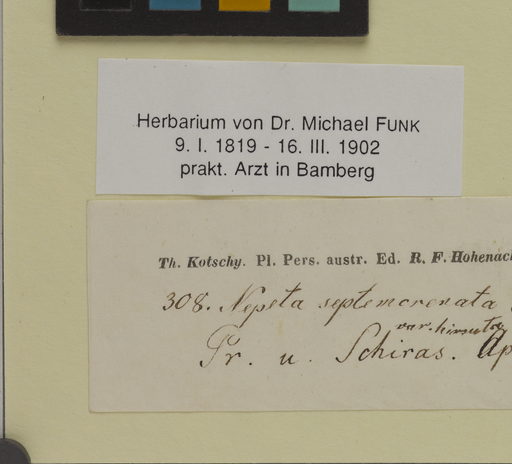 Herbarium von Dr. Michael FUNK
9. I. 1819 - 16. III. 1902
prakt. Arzt in Bamberg
Th. Kotschy. Pl. Pers. austr. Ed. R. F. Hohenac
308. Nepeta septemcrenata
var. hirsuta
Pr. u. Schiras. Ap